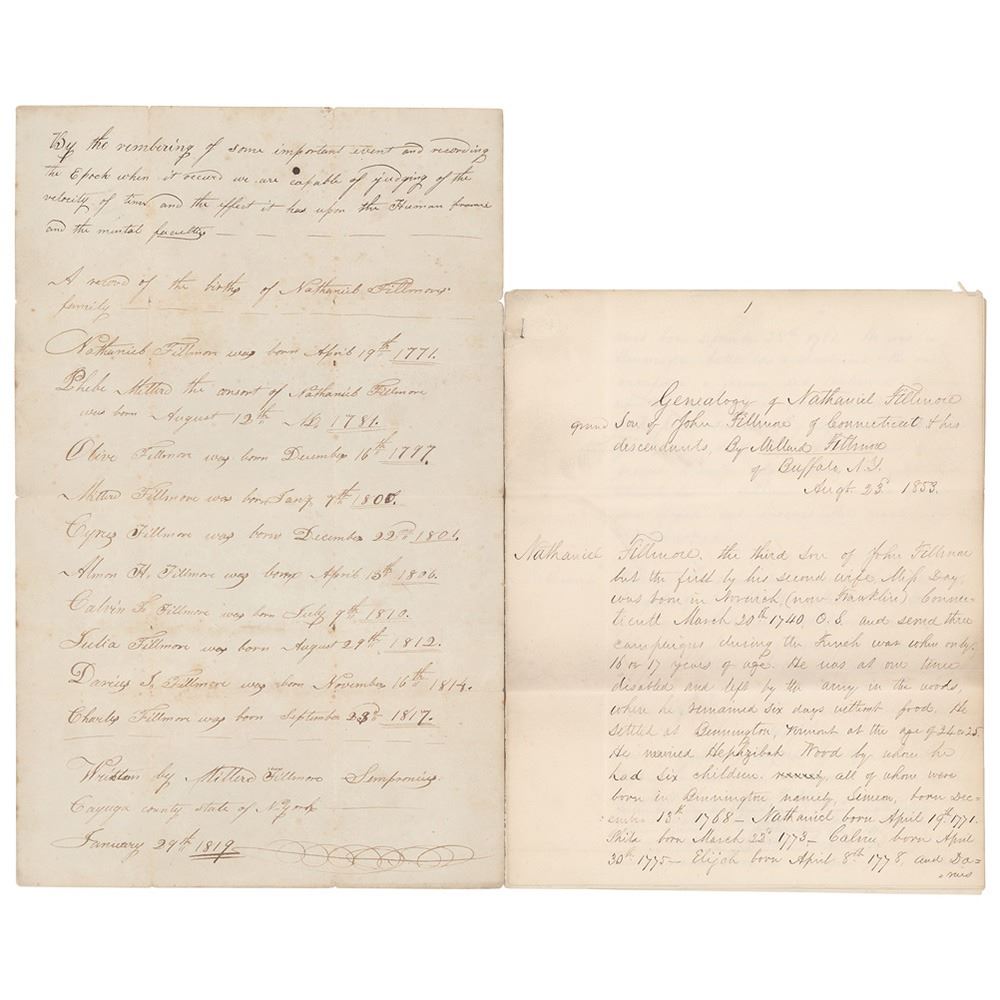 By the rembring of some important event and recording
the Epoch when it occurd we are capable of judging of the
velocity of time and the effect it has upon the Human frame
and the mental faculty
A record of the births of Nathaniel Fillmores
family
Nathaniel Fillmore was born April 19th 1771.
Phebe Millerd the consort of Nathaniel Fillmore
was born August 12th AD 1781.
Olive Fillmore was born December 16th 1797.
Millerd Fillmore was born Jany 7th 1800.
Cyrus Fillmore was born December 22nd 1801.
Almon H. Fillmore was born April 13th 1806.
Calvin T. Fillmore was born July 9th 1810.
Julia Fillmore was born August 29th 1812.
Darius I. Fillmore was born November 16th 1814.
Charles Fillmore was born September 23rd 1817.
Written by Millerd Fillmore Sempronius
Cayuga county state of N.york
January 29th 1819.
1
Genealogy of Nathaniel Fillmore
grand Son of John Fillmore of Connecticut & his
descendants, By Millard Fillmore
of Buffalo, N.Y.
Augt. 23d 1853.
Nathaniel Fillmore, the third Son of John Fillmore
but the first by his second wife, Miss Day,
was born in Norwich, (now Franklin) Connec-
ticutt March 20th 1740, O.S. and served three
campaigns during the French war when only
16 or 17 years of age. He was at one time
disabled and left by the army in the woods,
where he remained six days without food. He
settled at Bennington, Vermont at the age of 24 or 25
He married Hepzibah Wood by whom he
had six children, all of whom were
born in Bennington namely, Simeon, born Dec-
ember 13th 1768 — Nathaniel born April 19th 1771.
Phila born March 23d 1773 — Calvin born April
30th 1775 — Elijah born April 8th 1778, and Da-
rius